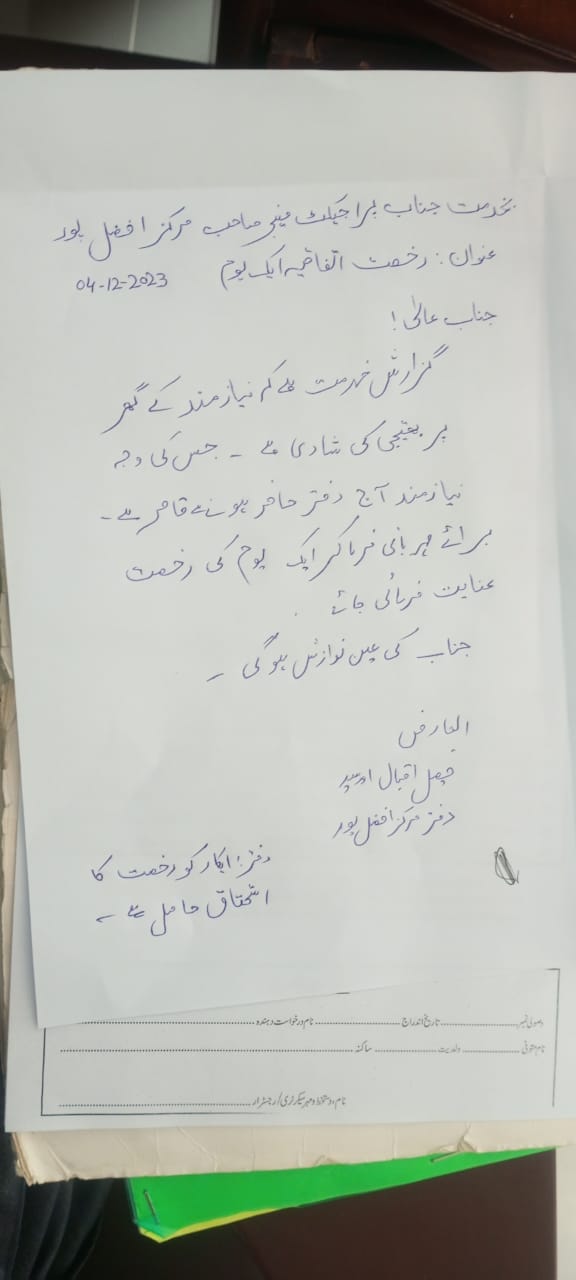 بخدمت جناب پراجیکٹ مینیجر صاحب مرکز افضل پور
عنوان: رخصت اتفاقیہ ایک یوم 04-12-2023
جناب عالی!
گزارش خدمت ہے کہ نیازمند کے گھر
پر بھتیجی کی شادی ہے ۔ جس کی وجہ
نیازمند آج دفتر حاضر ہونے سے قاصر ہے ۔
برائے مہربانی فرما کر ایک یوم کی رخصت
عنایت فرمائی جائے ۔
جناب کی عین نوازش ہوگی ۔
العارض
فیصل اقبال
دفتر مرکز افضل پور
کو رخصت کا
استحقاق حاصل ہے ۔
وصولی نمبر ........ تاریخ اندراج ........ نام درخواست دہندہ ........
نام متوفی ........ ولدیت ........ ساکنہ ........
نام، دستخط و مہر سیکرٹری / رجسٹرار ........